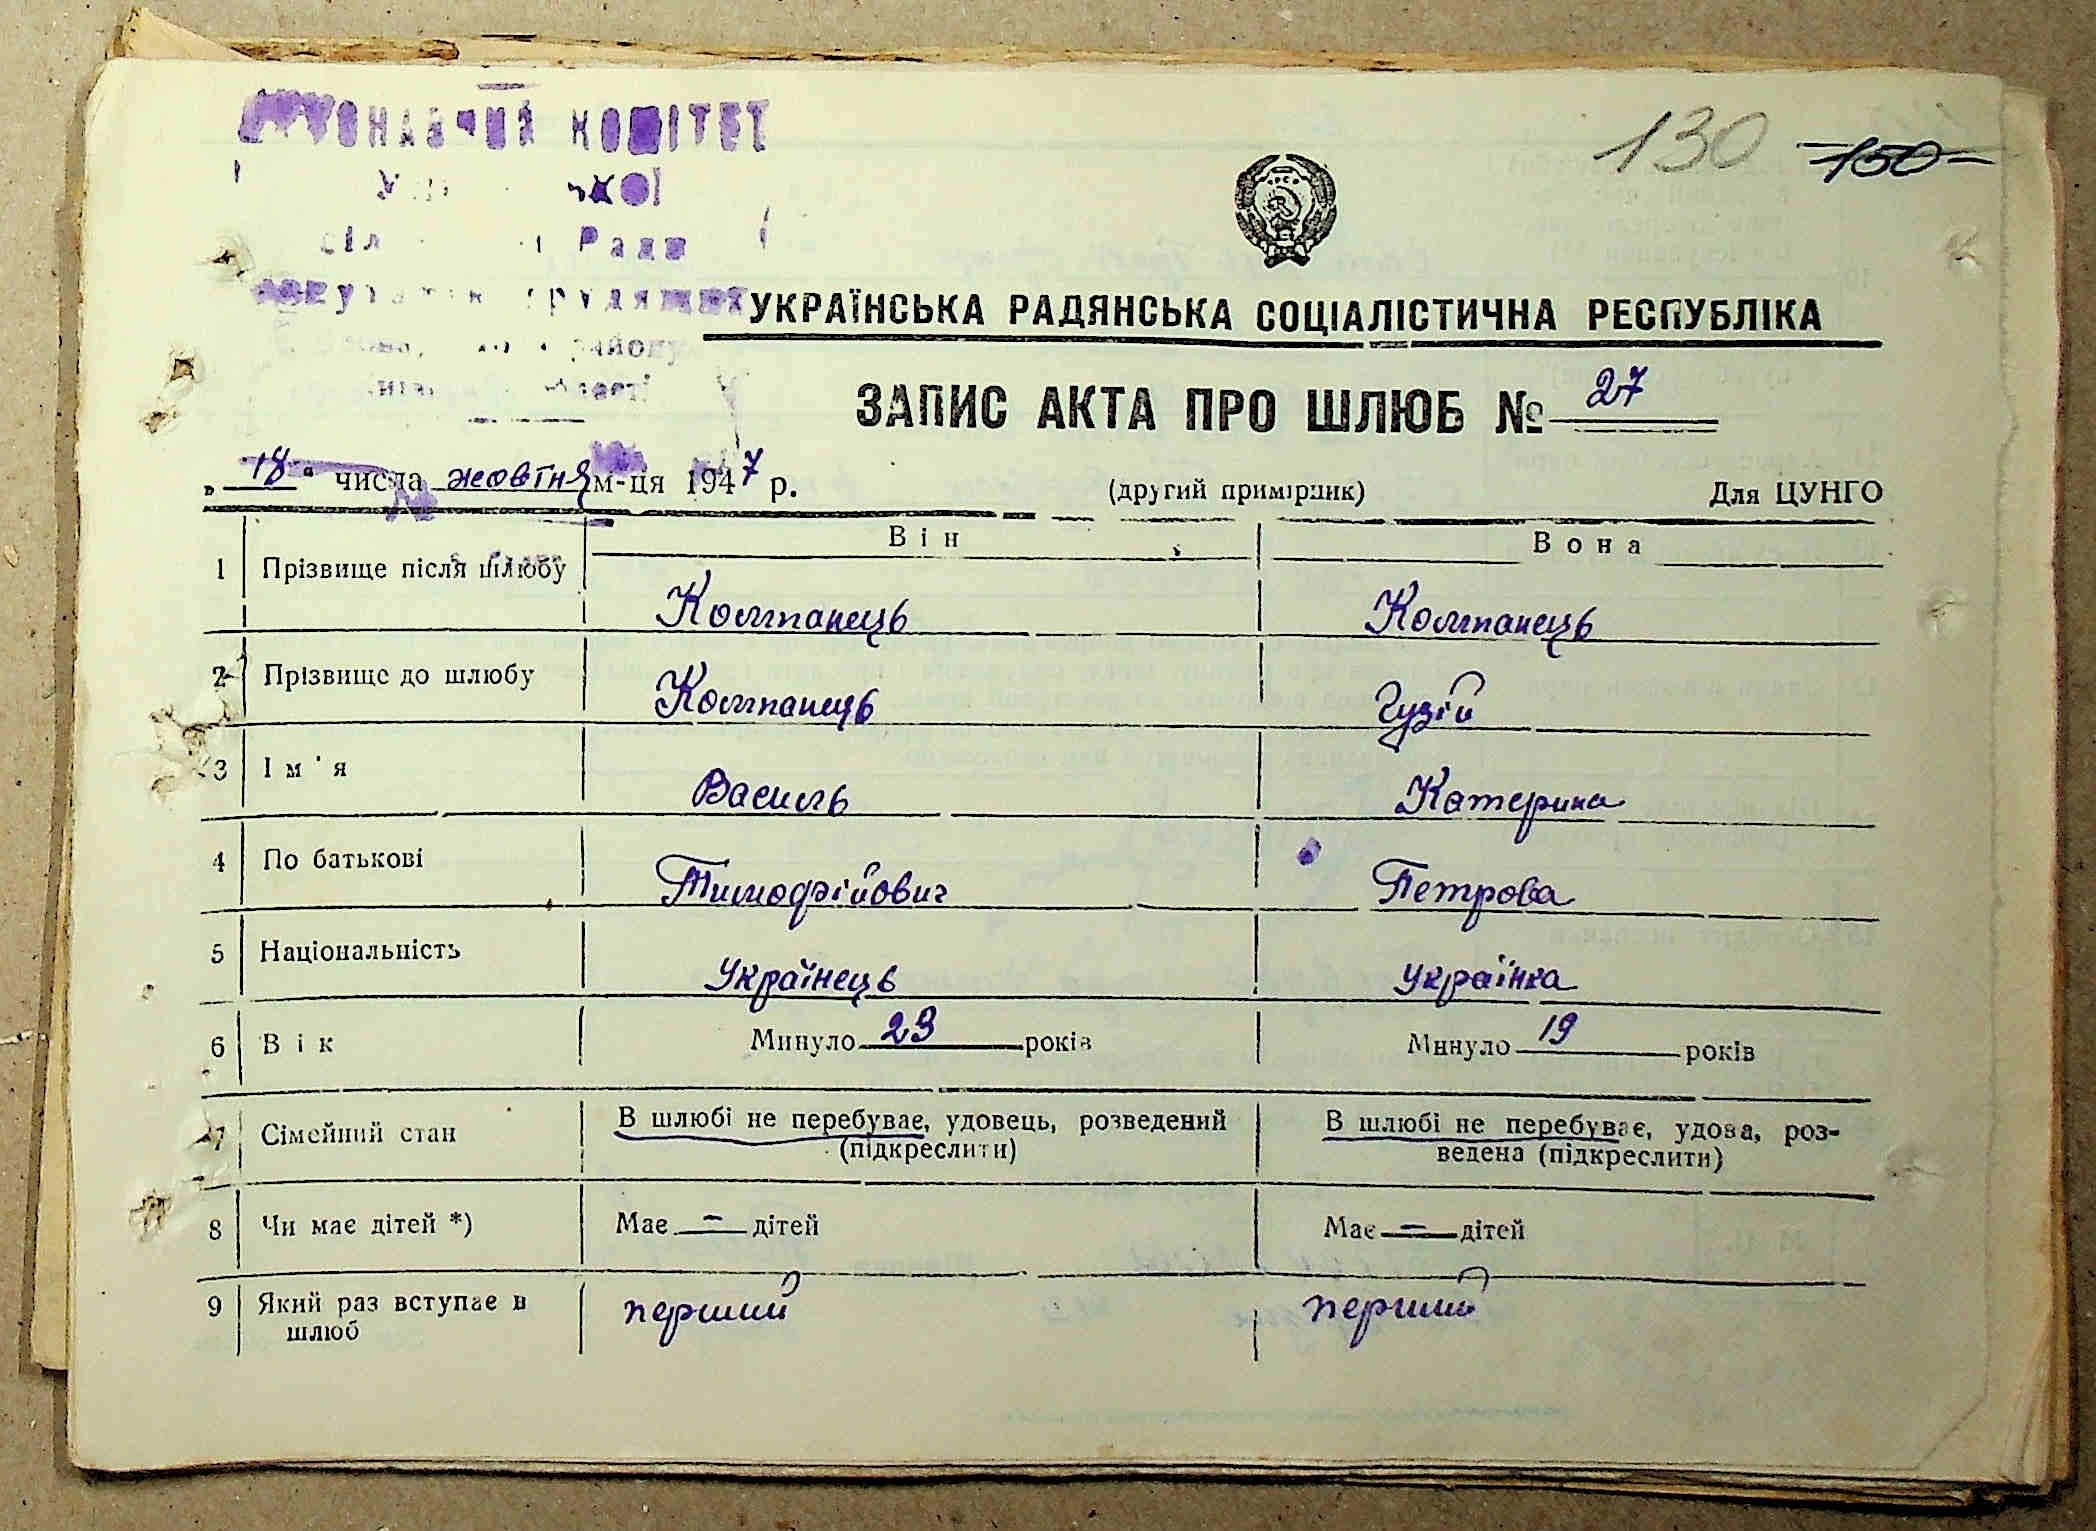 КОМІТЕТ
Ради
району
130 150
УКРАЇНСЬКА РАДЯНСЬКА СОЦІАЛІСТИЧНА РЕСПУБЛІКА
ЗАПИС АКТА ПРО ШЛЮБ № 27
„18“ числа жовтня м-ця 1947 р. (другий примірник) Для ЦУНГО
Він Вона
1 Прізвище після шлюбу Колтпанець Колтпанець
2 Прізвище до шлюбу Колтпанець Гузій
3 Ім'я Василь Катерина
4 По батькові Тимофійович Петрова
5 Національність Українець Українка
6 Вік Минуло 23 років Минуло 19 років
7 Сімейний стан В шлюбі не перебуває, удовець, розведений (підкреслити) В шлюбі не перебуває, удова, роз-
ведена (підкреслити)
8 Чи має дітей *) Має — дітей Має — дітей
9 Який раз вступає в шлюб перший перший